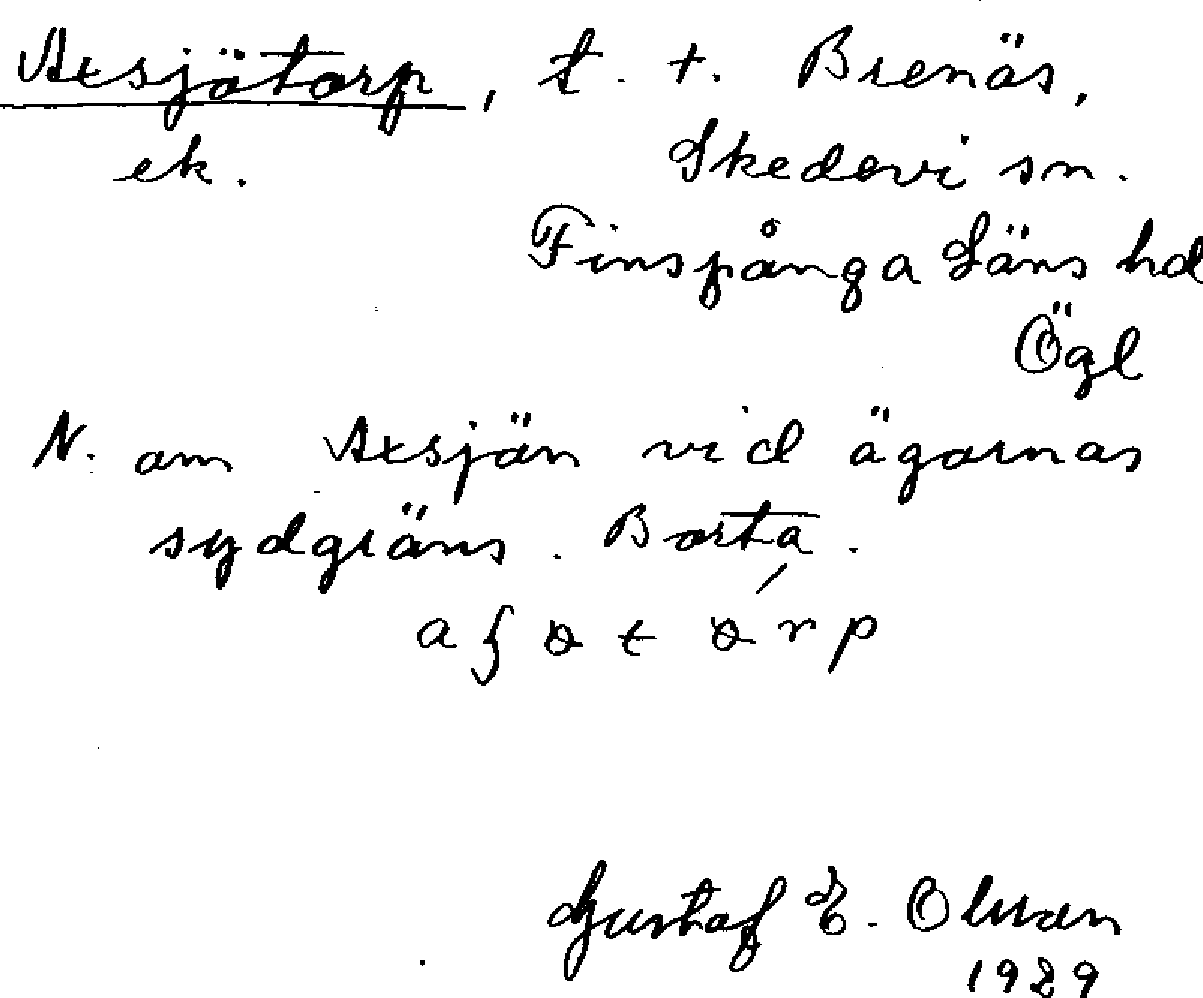 Axsjötorp, t. t. Brenäs,
ek. Skedevi sn.
Finspånga Läns hd
Ögl
N. om Axsjön vid ägornas
sydgräns. Borta.
Gustaf E. Olsson
1929